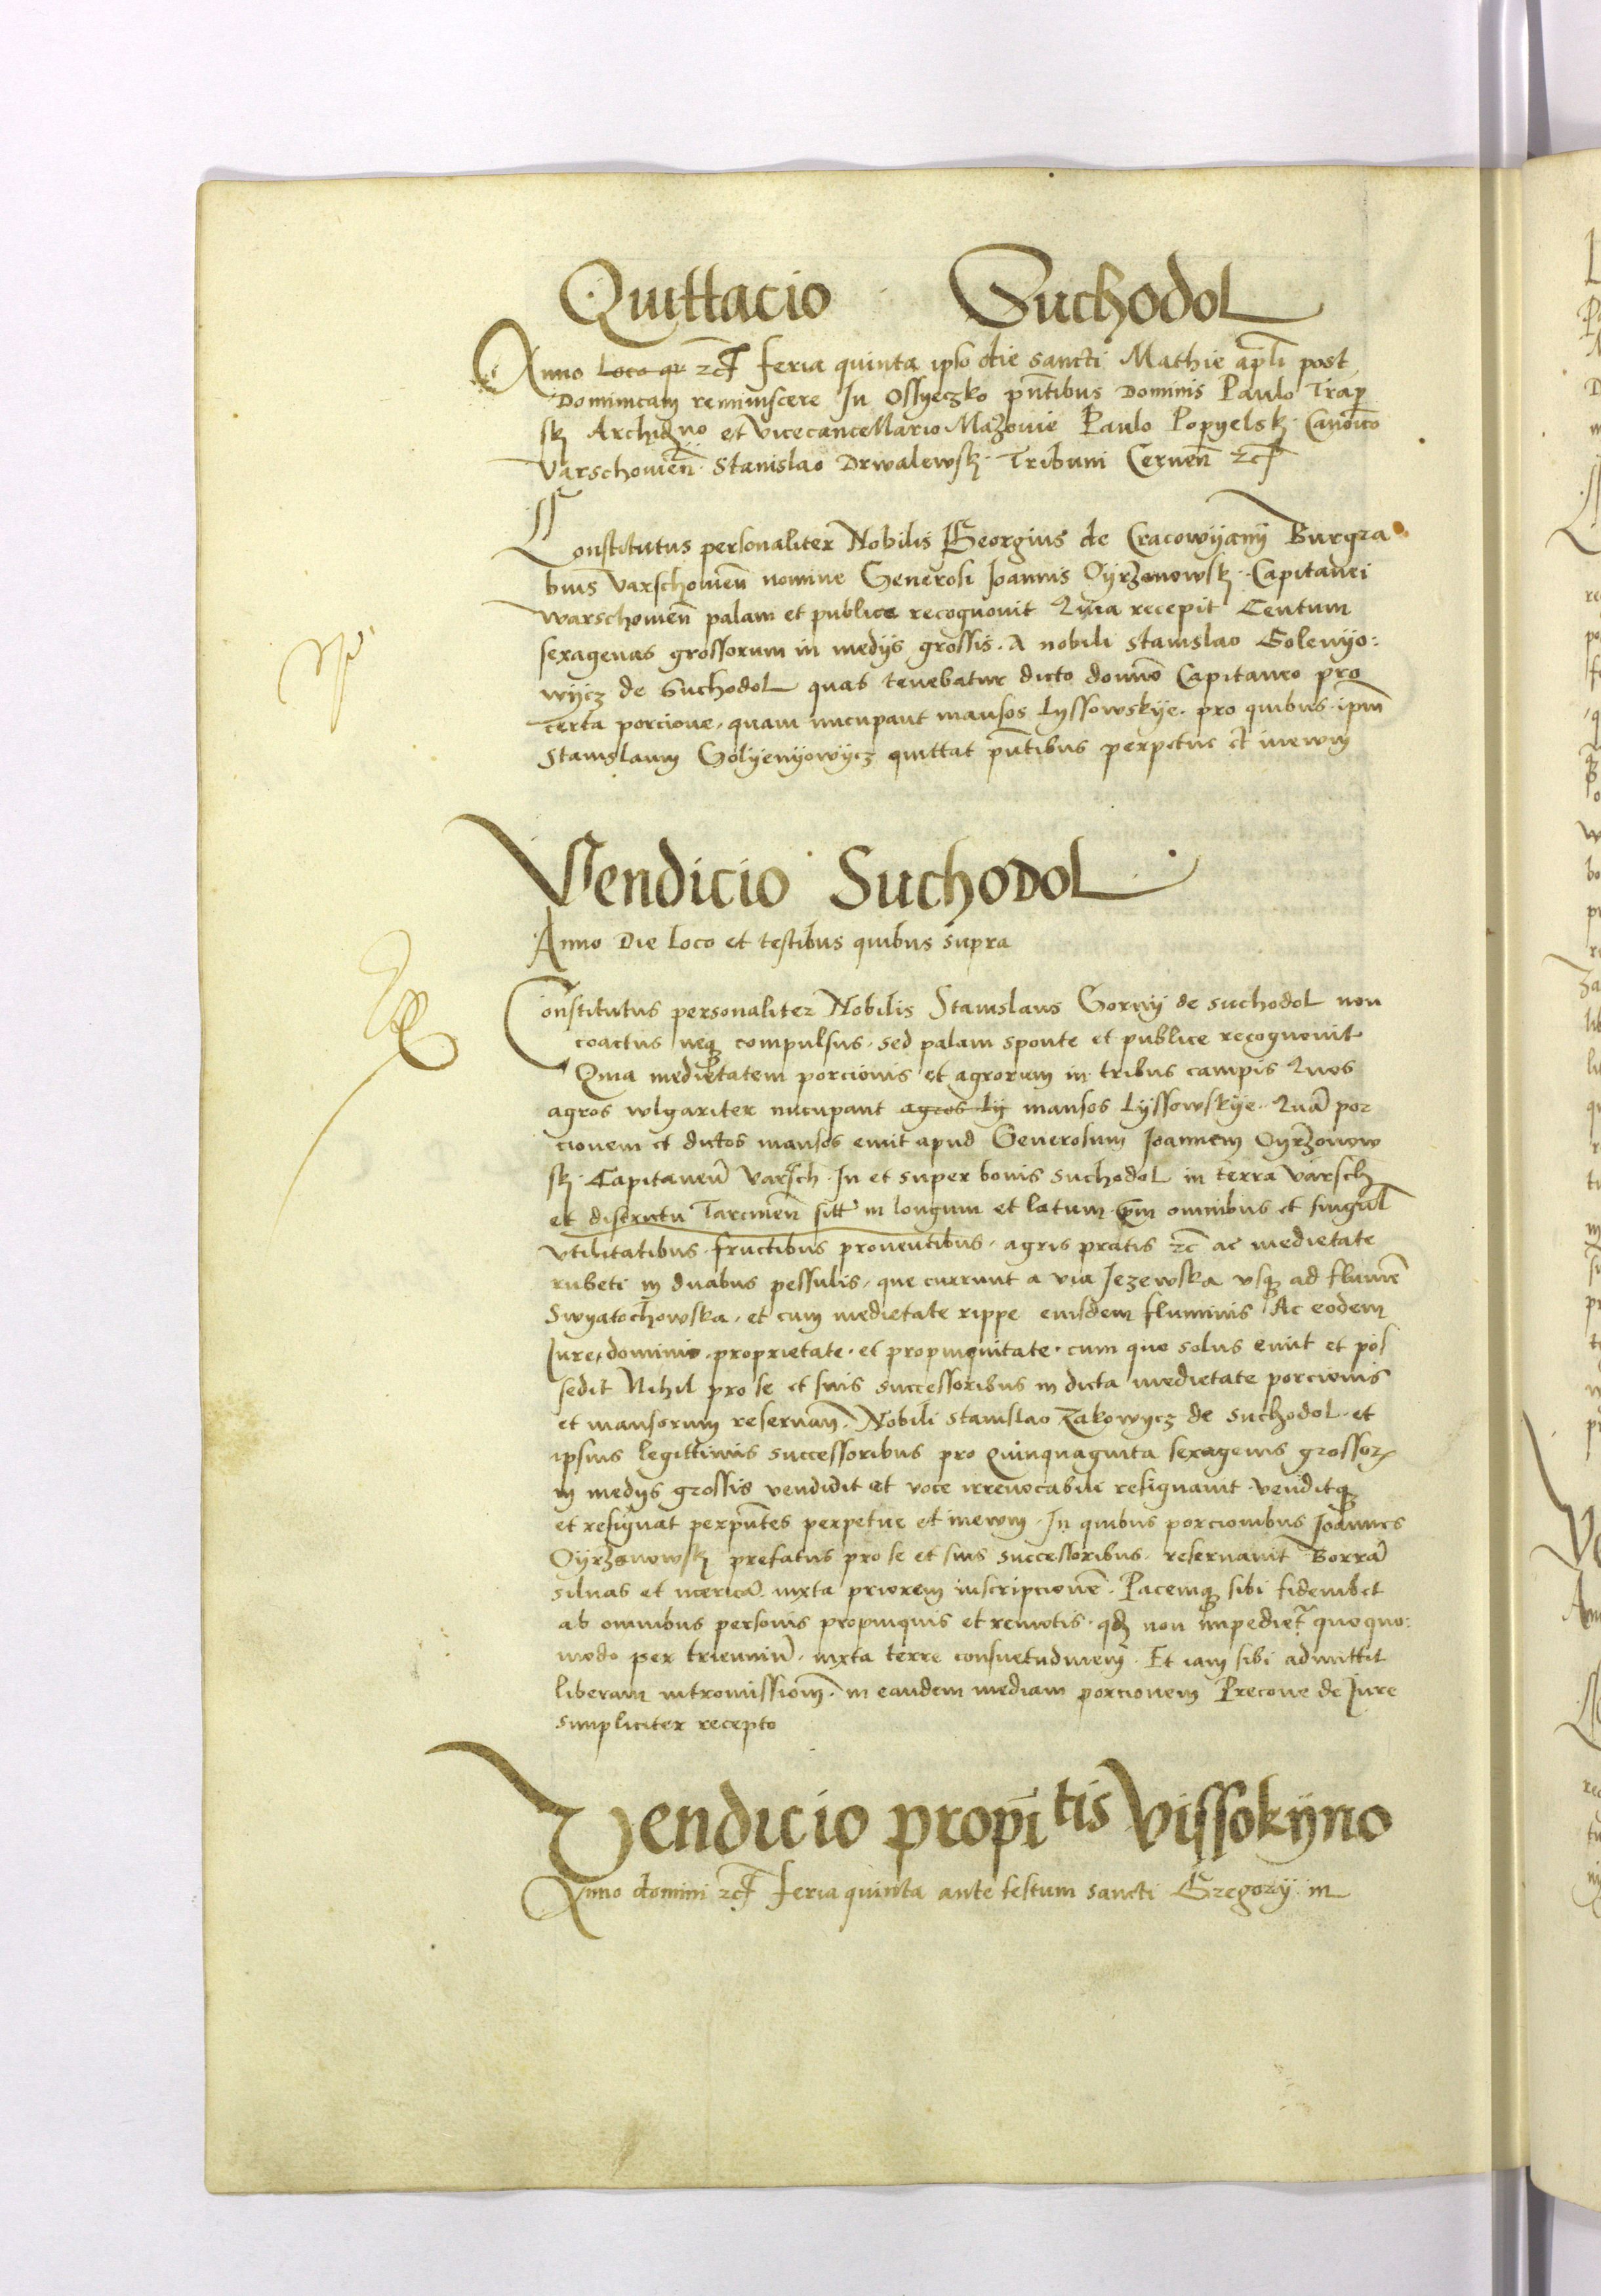 Quittacio Suchodol
Anno Loco qr zcꝭ feria quinta ipso die sancti Mathie apl̄i post
Dominicam reminiscere In Ossyeczko pn̄tibus Dominis Paulo Trap
sk Archidno et vicecancellario Mazouie Paulo Popyelsk. Canōico
Varschouien̄. Stanislao Drwalewsk. Tribuni Cernen̄ zc
Constitutus personaliter Nobilis Georgius de Cracowyany Burgra
bius varschouien̄ nomine Generosi Joannis Oyrzonowsk. Capitanei
warschouien̄ palam et publice recognouit Quia recepit Centum
sexagenas grossorum in medijs grossis. A nobili Stanislao Golenyo:
wycz de Suchodol quas tenebatur dicto domīno Capitaneo pro
certa porcione, quam nūcupant mansos Lyssowskye. pro quibus ipm̄
Stanislaum Golyenyowycz quittat pn̄tibus perpetue et inewm
Vendicio Suchodol
Anno Die Loco et testibus quibus supra
Constitutus personaliter Nobilis Stanislaus Gorny de suchodol non
coactus neqꝫ compulsus. sed palam sponte et publice recognouit
Quia medietatem porcionis et agrorum in tribus campis Quos
agros wlgariter nūcupant agros Ly mansos Lyssowskye. Quā por
cionem et dictos mansos emit apud Generosum Joannem Oyrzonow
sk. Capitaneū Varsch. In et super bonis suchodol in terra varsch
et districtu Tarcinen̄ sitt̄ in longum et latum cum omnibus et singul̄
vtilitatibus. fructibus prouentibus. agris pratis zc̄ ac medietate
rubeti in duabus pessulis, que currunt a via Jezewska vsqꝫ ad fluuiē
Swyatochowska, et cum medietate rippe eiusdem fluminis. Ac eodem
Jure, dominio. proprietate. et propinquitate. cum quo solus emit et pos
sedit Nihil pro se et suis successoribus in dicta medietate porcionis
et mansorum reseruan̄. Nobili Stanislao Zakowycz de Suchodol. et
ipsius legittimis successoribus pro Quinquaginta sexagenis grossorꝝ
in medijs grossis vendidit et voce irreuocabili resignauit. venditqꝫ
et resignat per pn̄tes perpetue et inewm. In quibus porcionibus Joannes
Oyrzonowsk prefatus pro se et suis successoribus. reseruauit Borrā
siluas et mericā. iuxta priorem inscripcionē. Pacemqꝫ sibi fideiubet
ab omnibus personis propinquis et remotis. qd non impediet quoquo:
modo per trienniū. iuxta terre consuetudinem. Et iam sibi admittit
liberam intromissionē. in eandem mediam porcionem Precone de Jure
simpliciter recepto
Vendicio propitis Vissokyno
Anno domini zcꝭ feria quinta ante festum sancti Gregorij in